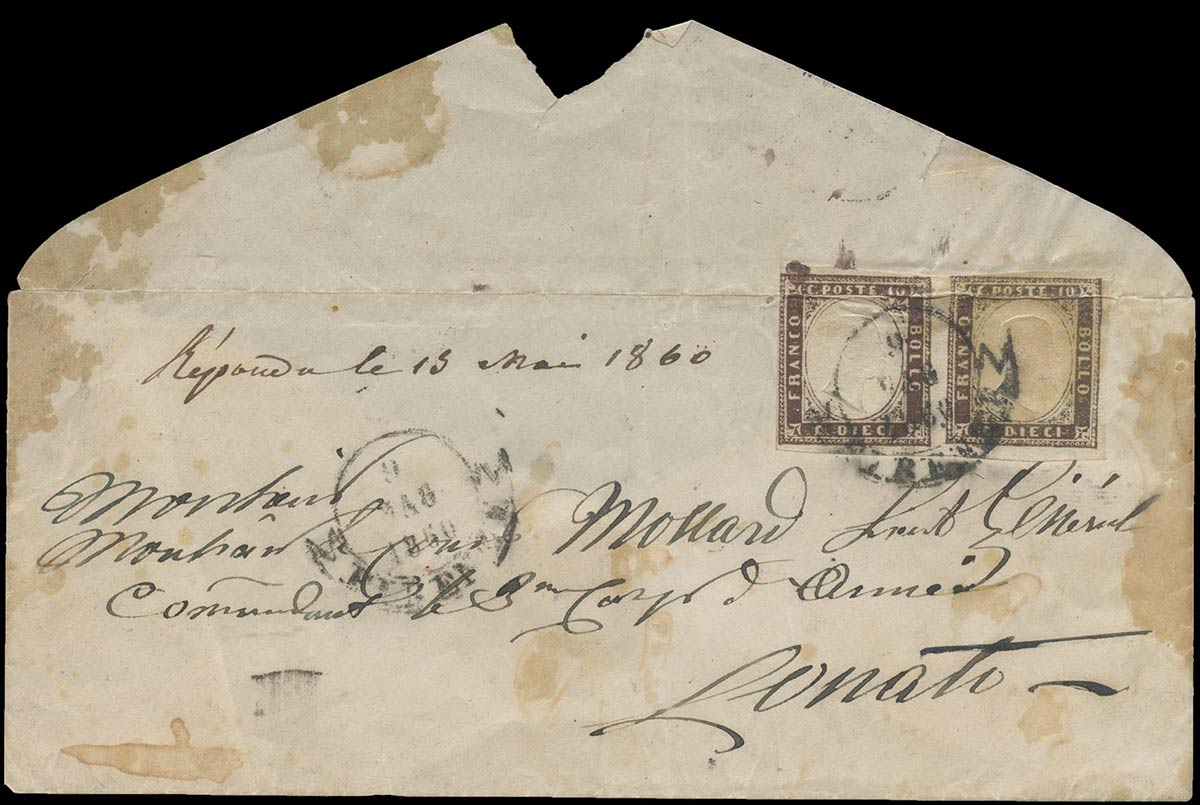 C. POSTE 10
FRANCO
BOLLO
C. DIECI
C. POSTE 10
FRANCO
BOLLO
C. DIECI
Répondu le 13 Mai 1860
9
1860
Monsieur
Monsieur le Mollard Lieut Général
Commandant le Corps d'Armée
Lonato